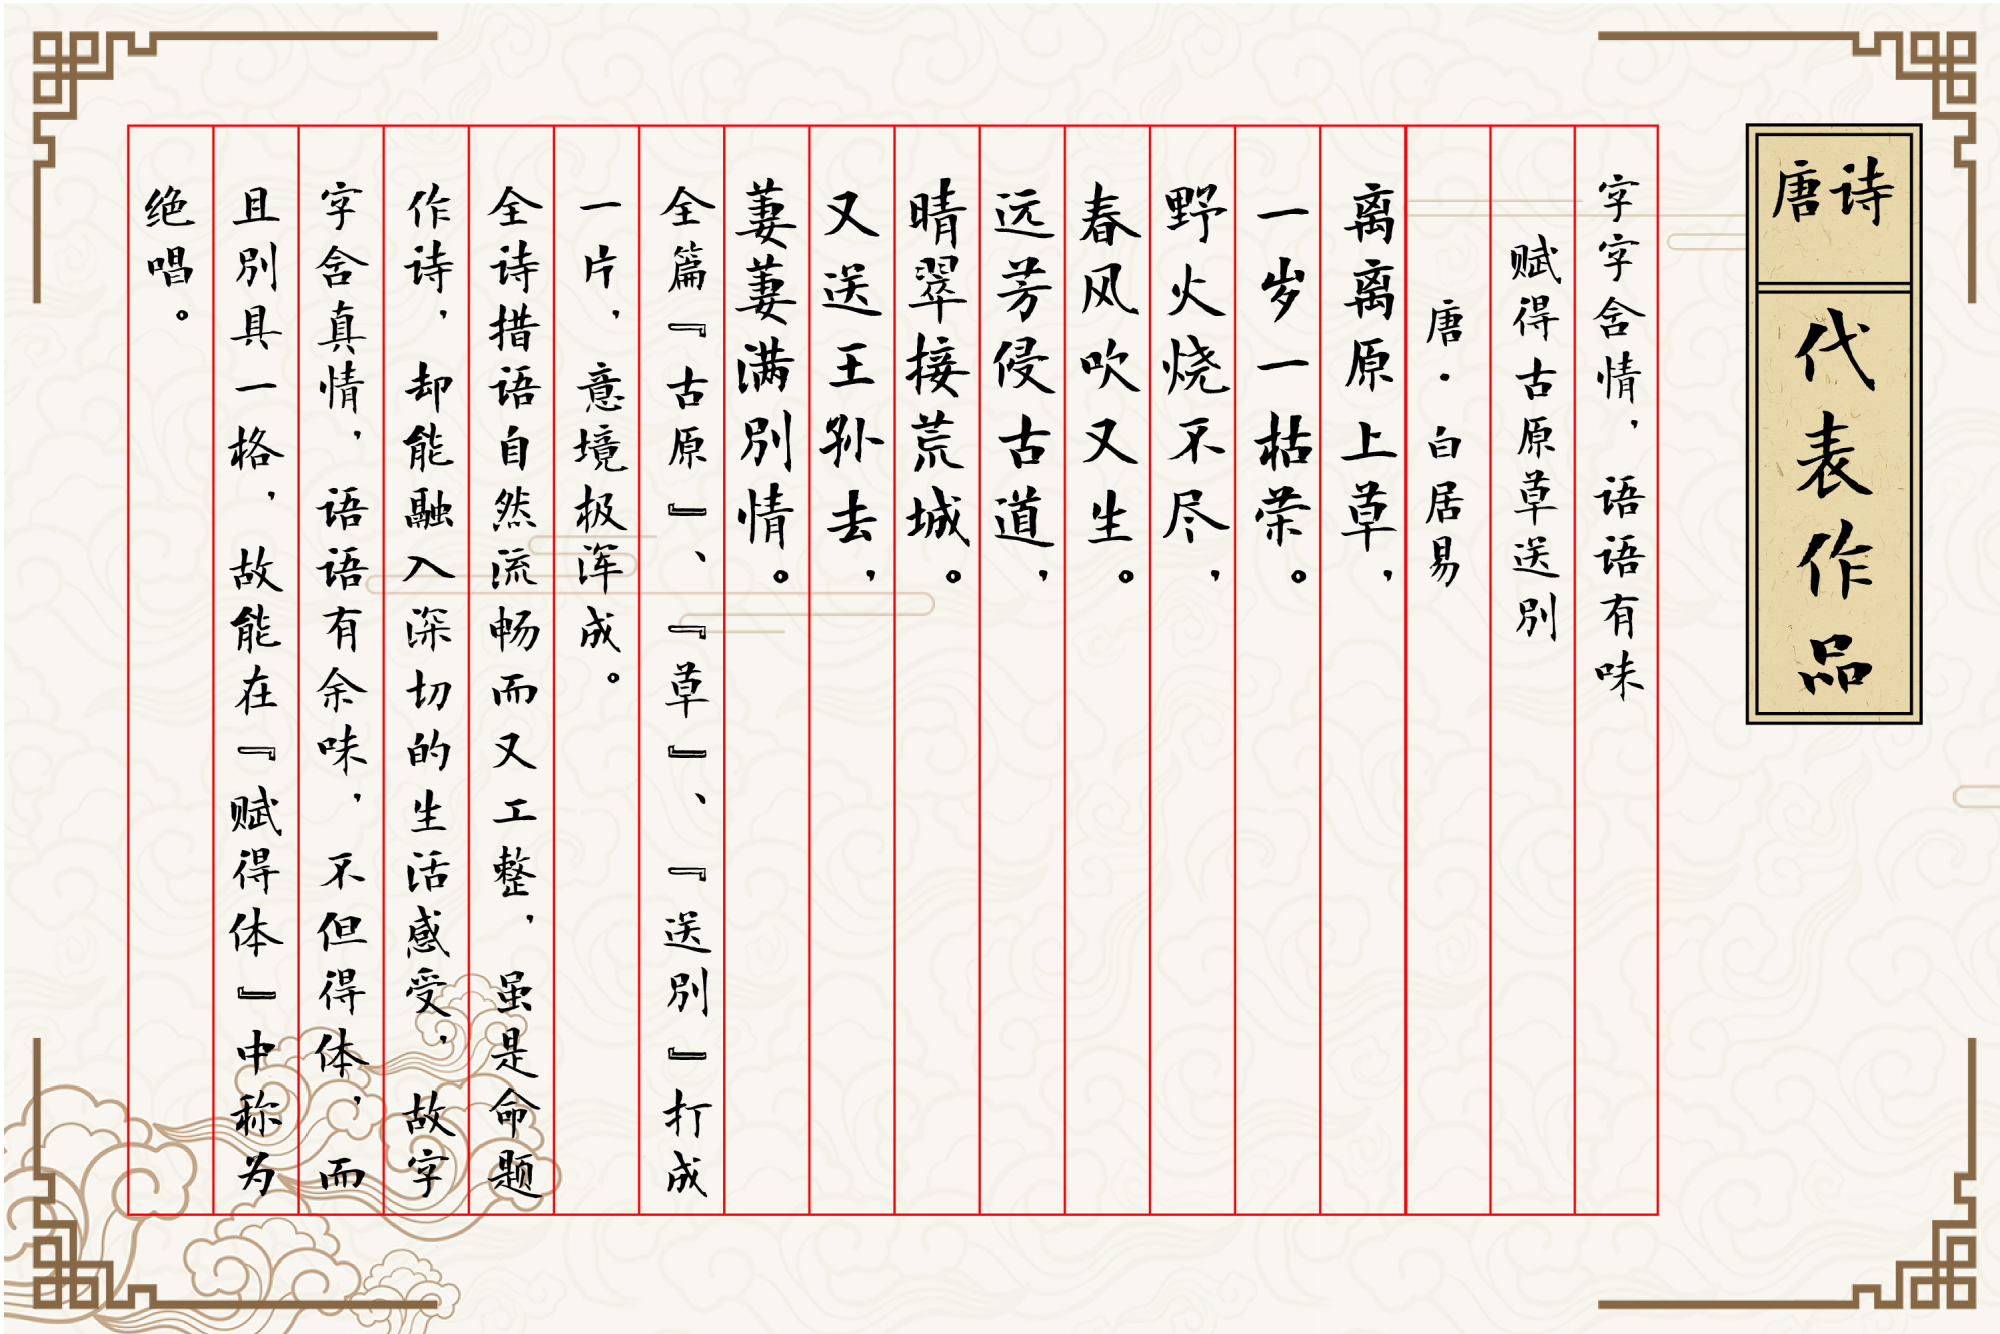 唐诗
代表作品
字字含情，语语有味
赋得古原草送别
唐·白居易
离离原上草，
一岁一枯荣。
野火烧不尽，
春风吹又生。
远芳侵古道，
晴翠接荒城。
又送王孙去，
萋萋满别情。
全篇『古原』、『草』、『送别』打成
一片，意境极浑成。
全诗措语自然流畅而又工整，虽是命题
作诗，却能融入深切的生活感受，故字
字含真情，语语有余味，不但得体，而
且别具一格，故能在『赋得体』中称为
绝唱。